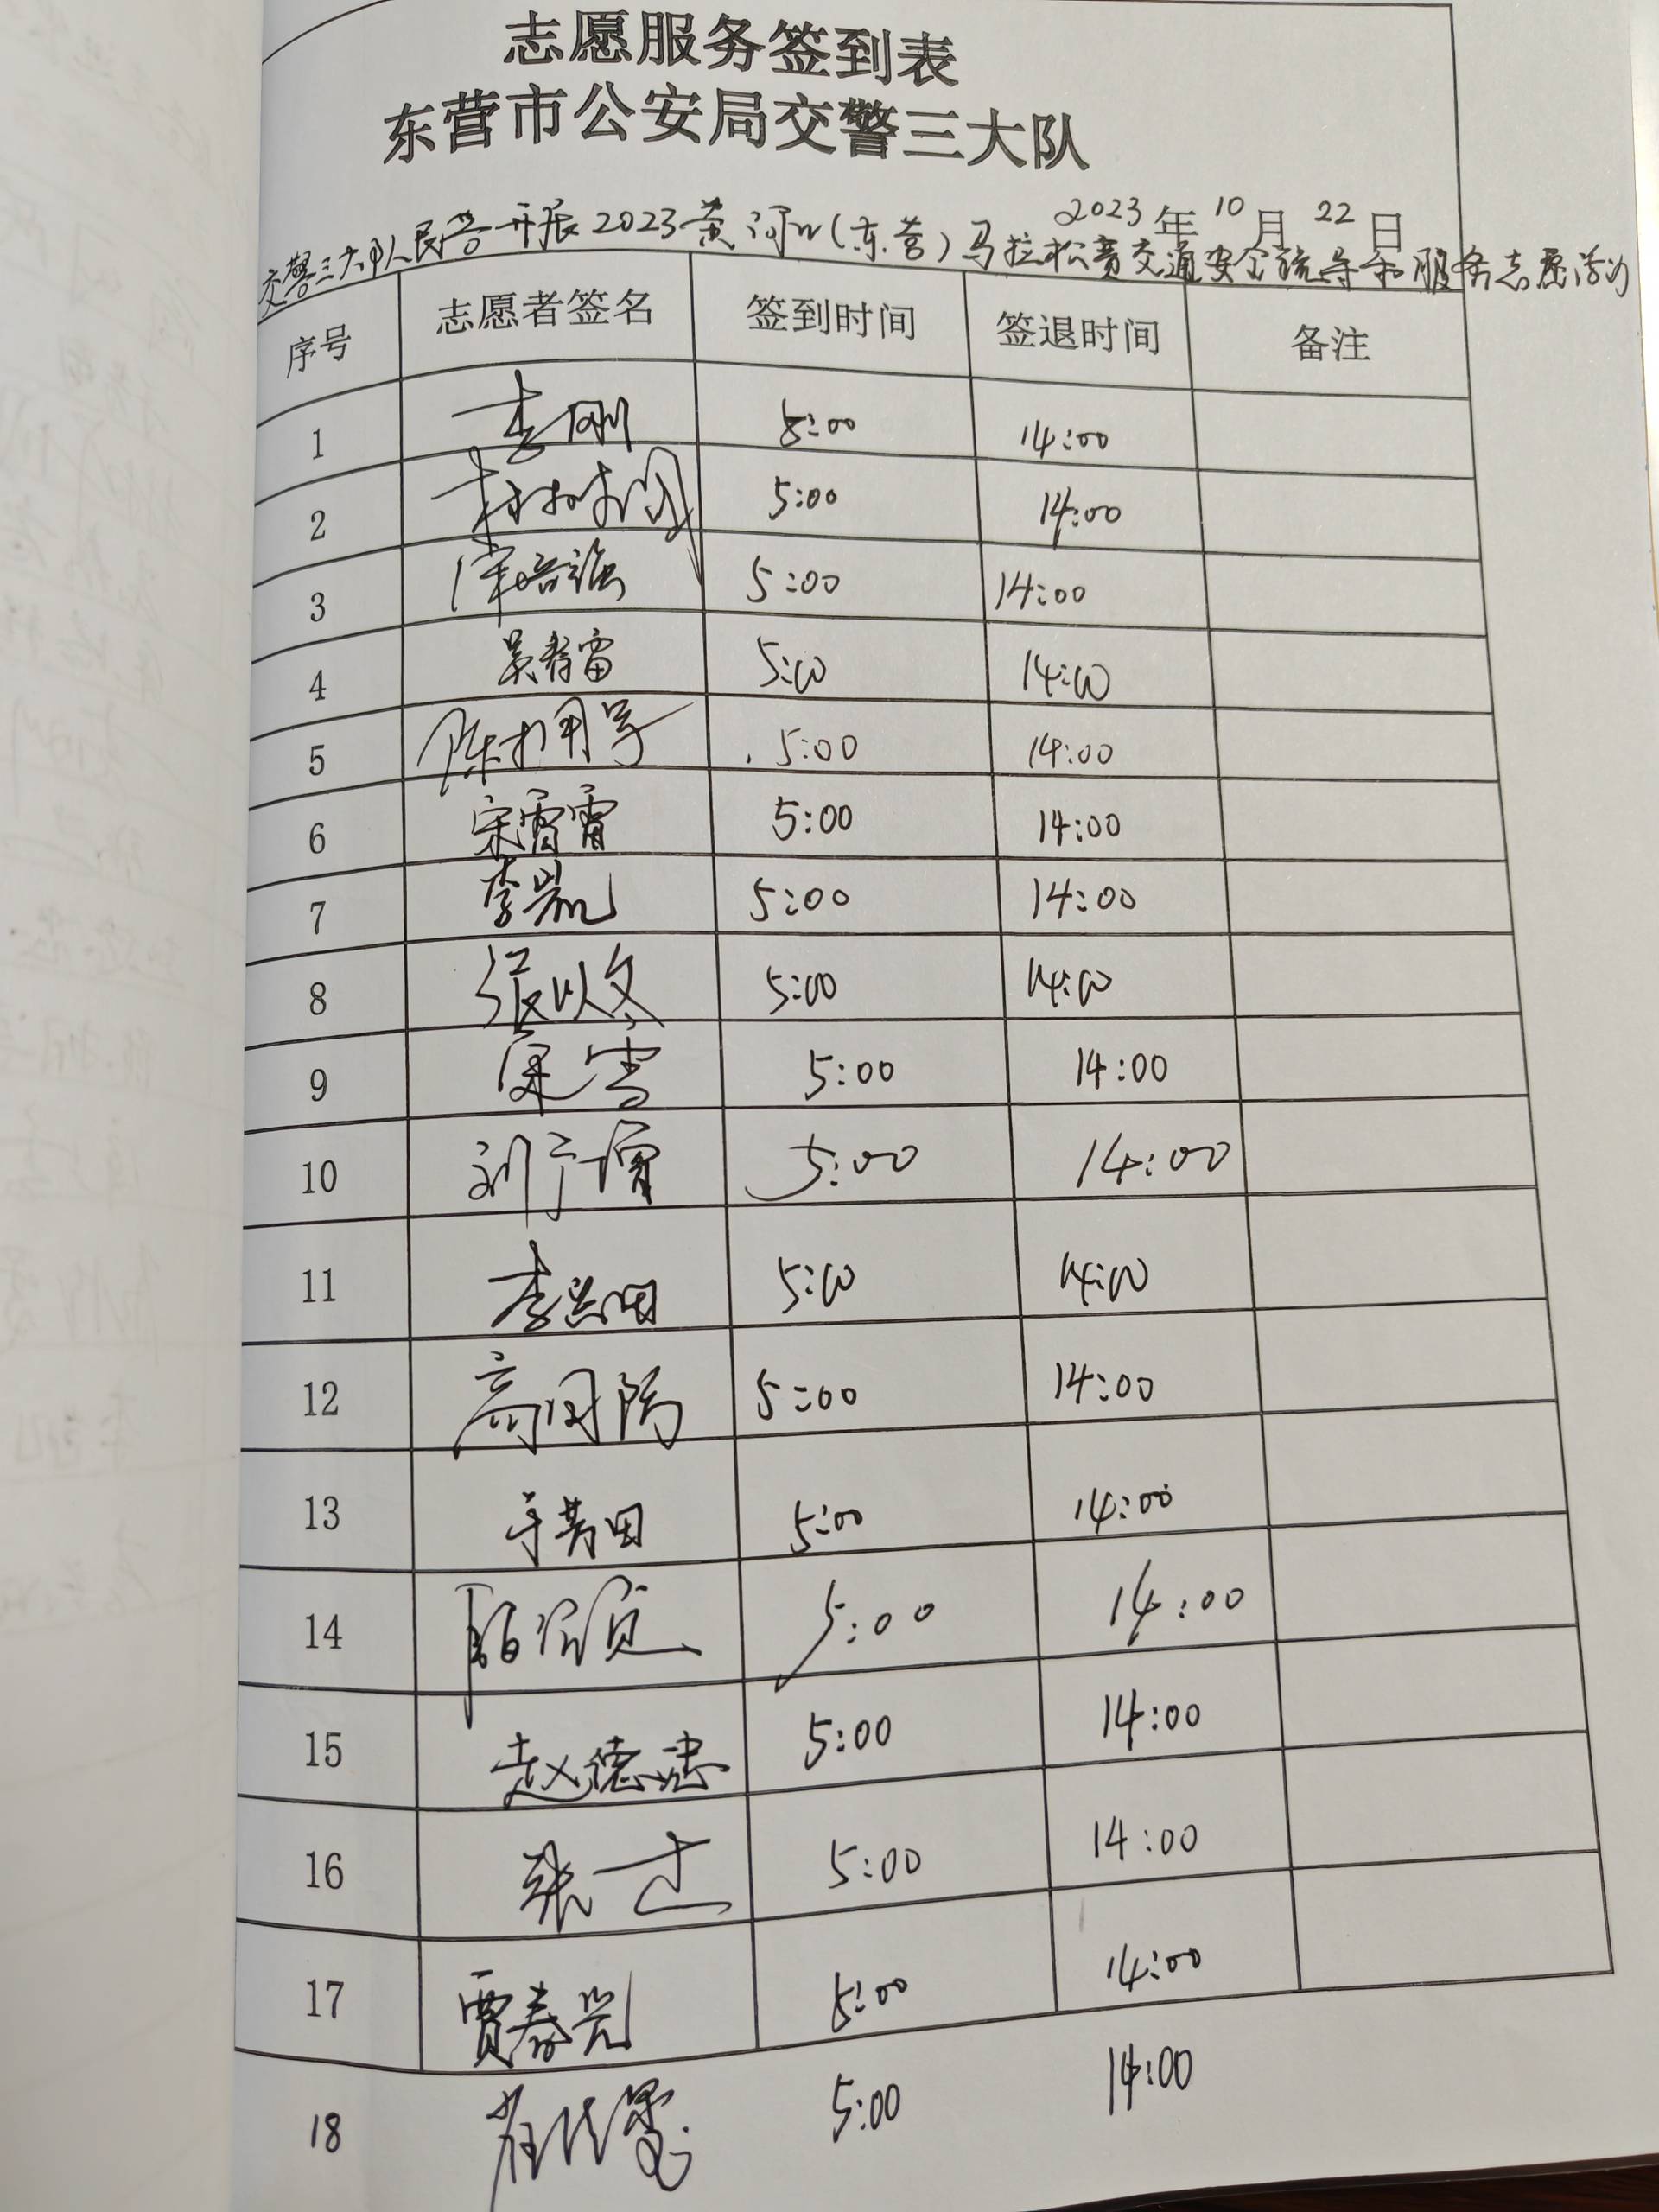 志愿服务签到表
东营市公安局交警三大队
2023年10月22日
交警三大队人民警开展2023黄河口(东营)马拉松赛交通安全疏导和服务志愿活动
序号 志愿者签名 签到时间 签退时间 备注
1 李刚 5:00 14:00
2 5:00 14:00
3 5:00 14:00
4 吴春雷 5:00 14:00
5 5:00 14:00
6 宋雷雷 5:00 14:00
7 李凯 5:00 14:00
8 张以文 5:00 14:00
9 5:00 14:00
10 刘广增 5:00 14:00
11 5:00 14:00
12 高国防 5:00 14:00
13 5:00 14:00
14 5:00 14:00
15 赵德忠 5:00 14:00
16 5:00 14:00
17 贾春光 5:00 14:00
18 5:00 14:00